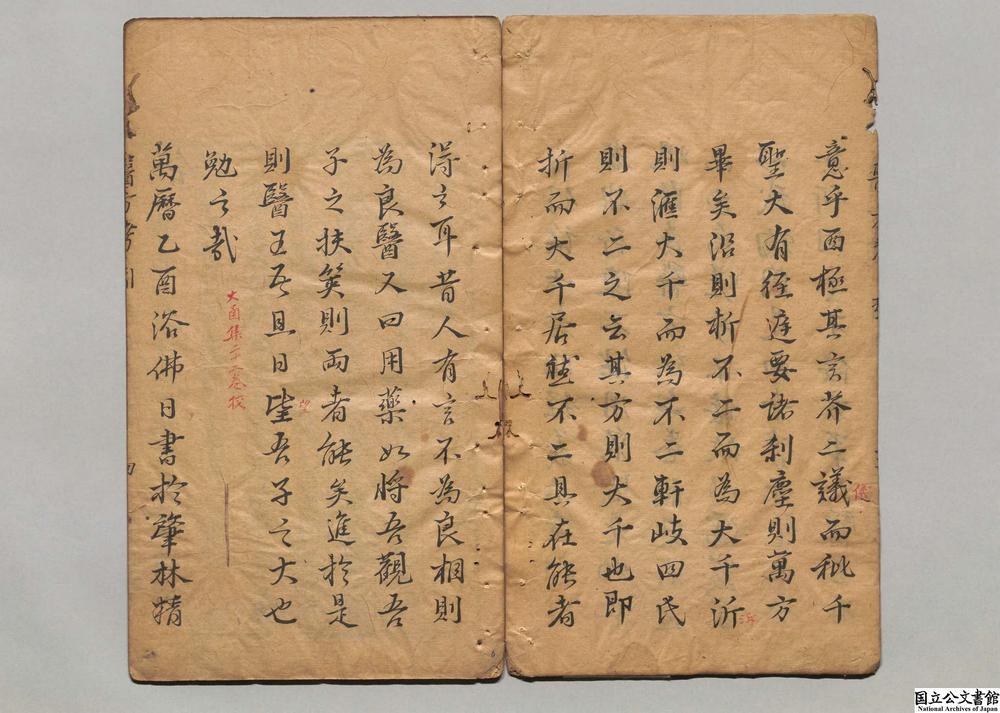 意乎而極其言芥二議而秕千
儀
聖大有徑庭要諸剎塵則萬方
畢矣沿則析不二而為大千沂
泝
則滙大千而為不二軒岐四氏
則不二之云其方則大千也即
折而大千居然不二具在能者
得之耳昔人有言不為良相則
為良醫又曰用藥如將吾觀吾
子之扶筴則兩者能矣進於是
則醫王吾且日望吾子之大也
望
勉之哉
大函集二十二卷校
萬曆乙酉浴佛日書於肇林精
国立公文書館
National Archives of Japan